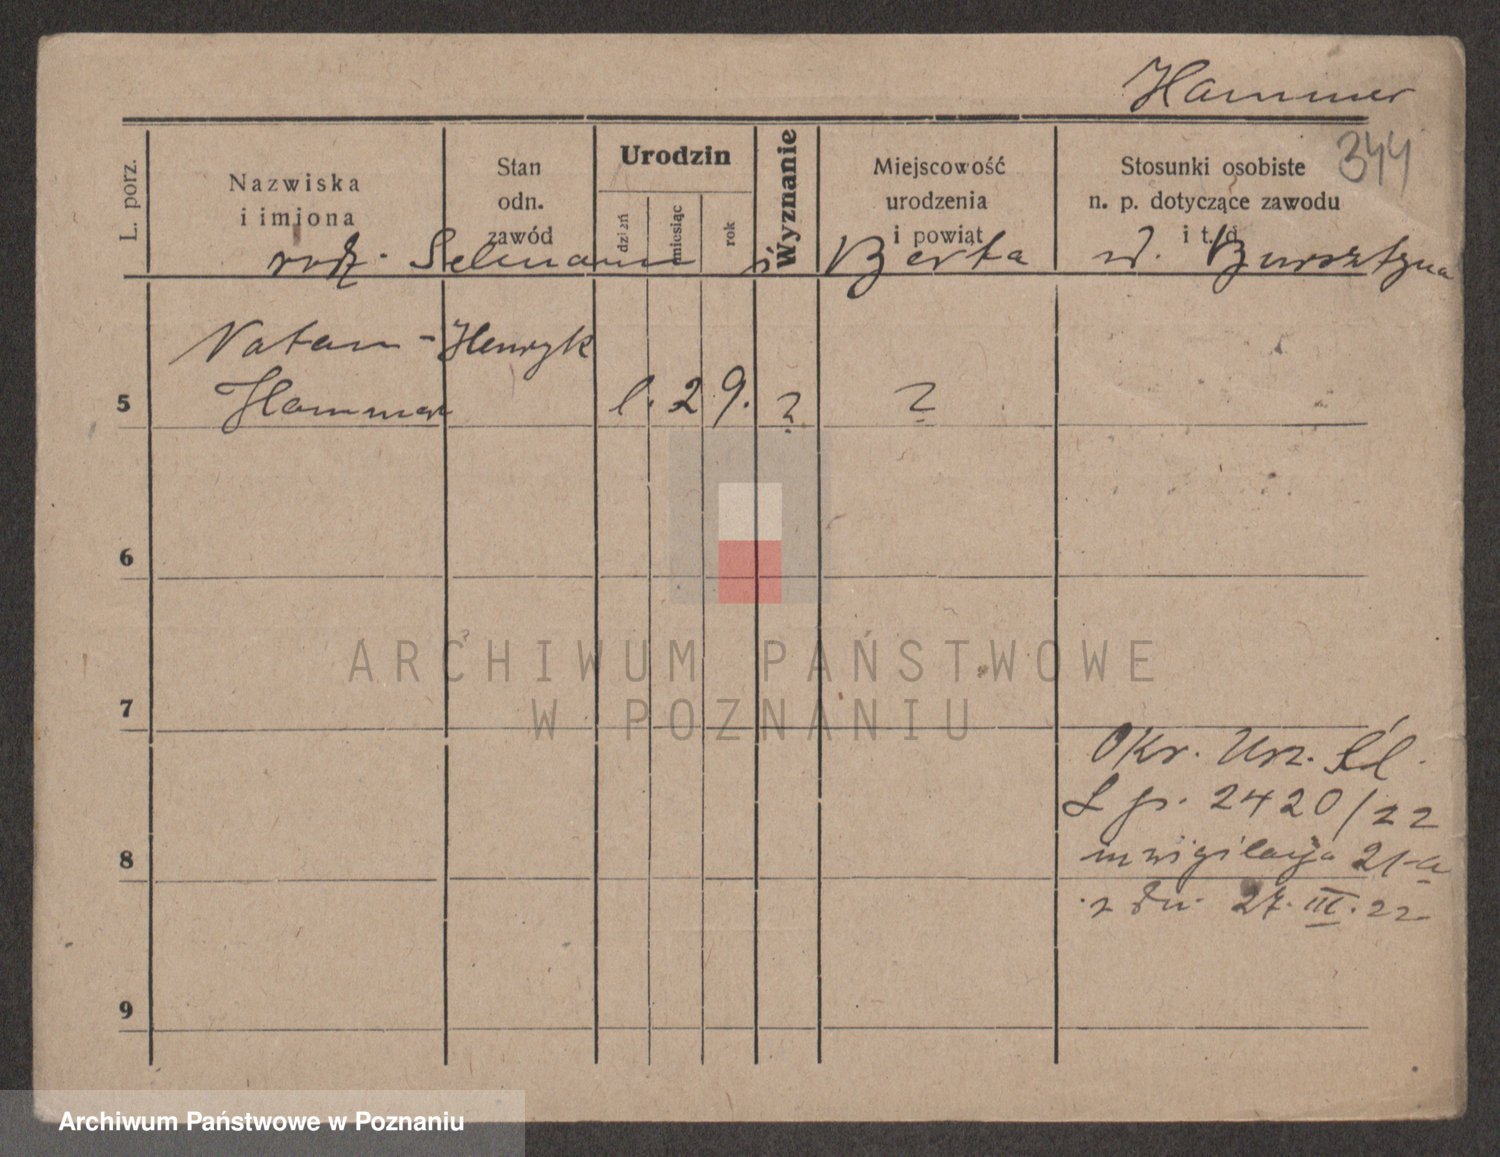 Hammer
344
L. porz.
Nazwiska
i imiona
Stan
odn.
zawód
Urodzin
dzień
miesiąc
rok
Wyznanie
Miejscowość
urodzenia
i powiat
Stosunki osobiste
n. p. dotyczące zawodu
i t. d.
rodz. i Berta z Bursztyna
Natan - Henryk
5 Hammer l. 29. ? ?
6
7
Okr. Urz. Śl.
L p. 2420/22
inwigilacja 21-a
z dn. 27. III. 22
8
9
ARCHIWUM PAŃSTWOWE
W POZNANIU
Archiwum Państwowe w Poznaniu